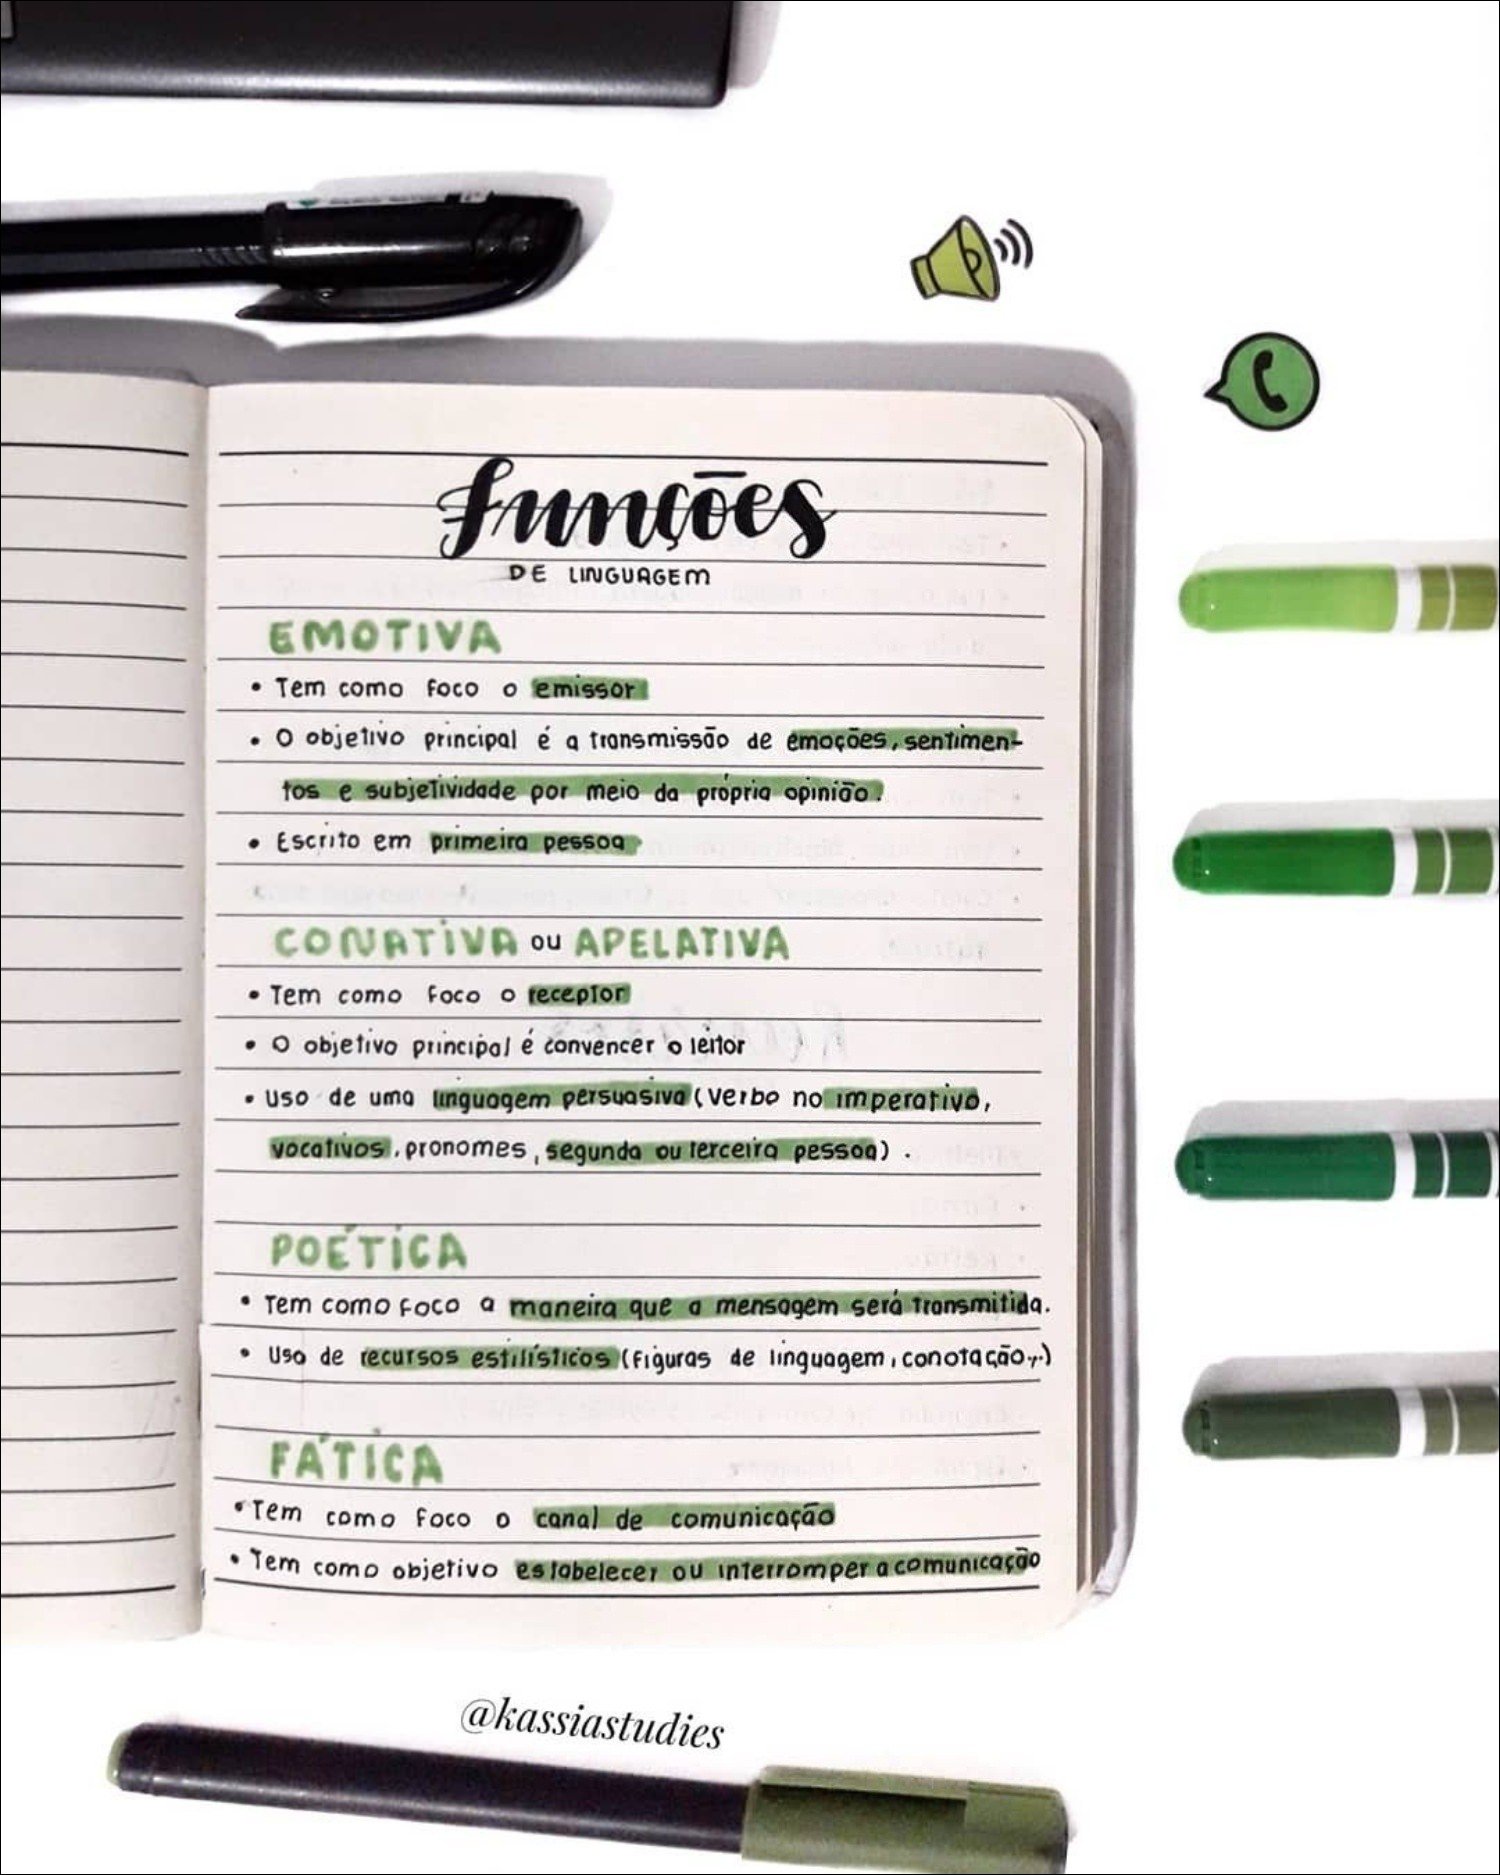 Funções
DE LINGUAGEM
EMOTIVA
• Tem como foco o emissor
• O objetivo principal é a transmissão de emoções, sentimen-
tos e subjetividade por meio da própria opinião.
• Escrito em primeira pessoa
CONATIVA ou APELATIVA
• Tem como foco o receptor
• O objetivo principal é convencer o leitor
• Uso de uma linguagem persuasiva (verbo no imperativo,
vocativos, pronomes, segunda ou terceira pessoa).
POÉTICA
• Tem como foco a maneira que a mensagem será transmitida.
• Uso de recursos estilísticos (figuras de linguagem, conotação...)
FÁTICA
• Tem como foco o canal de comunicação
• Tem como objetivo estabelecer ou interromper a comunicação
@kassiastudies